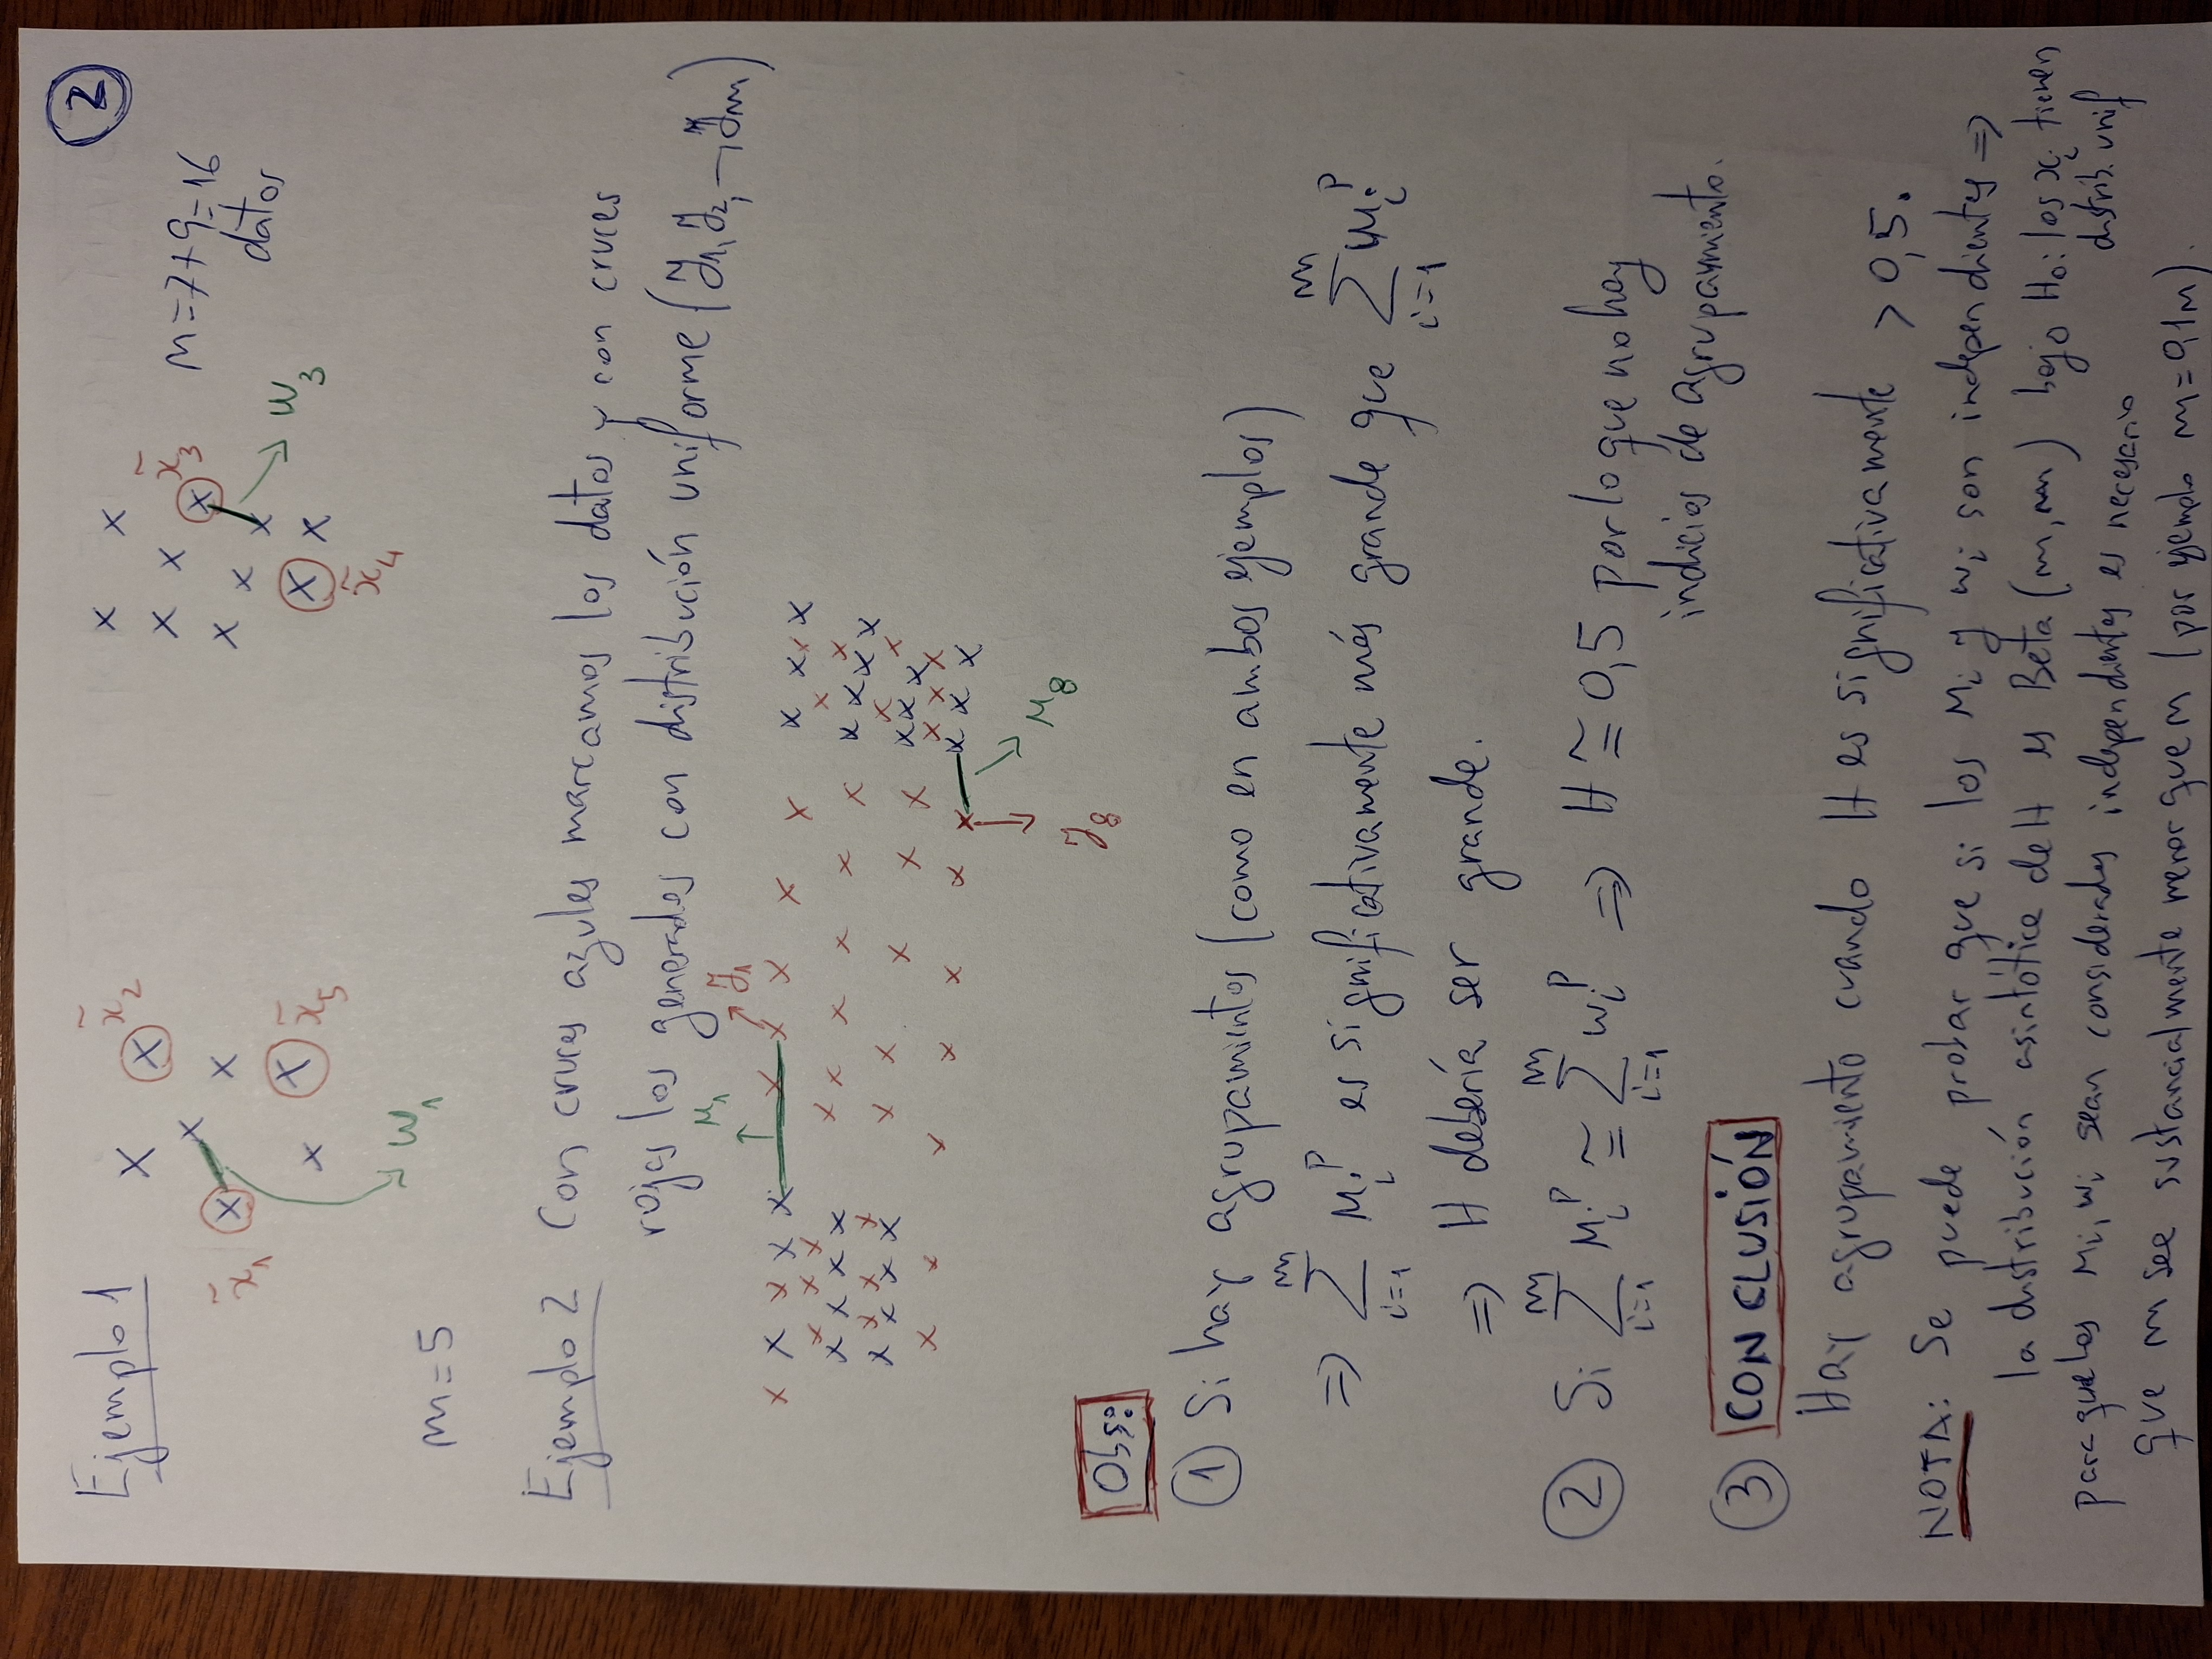 2
Ejemplo 1
x̃₂
x̃₁
x̃₃
n=7+9=16
datos
x̃₅
w₃
x̃₄
w₁
m=5
Ejemplo 2 Con cruces azules marcamos los datos y con cruces
rojas los generados con distribución uniforme (y₁, y₂, –, yₘ)
μ₁
y₁
μ₈
y₈
Obs:
① Si hay agrupamientos (como en ambos ejemplos)
⇒ ∑ᵢ₌₁ᵐ μᵢᵖ es significativamente más grande que ∑ᵢ₌₁ᵐ wᵢᵖ
⇒ H debería ser grande.
② Si ∑ᵢ₌₁ᵐ μᵢᵖ ≅ ∑ᵢ₌₁ᵐ wᵢᵖ ⇒ H ≅ 0,5 por lo que no hay
indicios de agrupamiento.
③ CONCLUSIÓN
Hay agrupamiento cuando H es significativamente > 0,5.
NOTA: Se puede probar que si los μᵢ y wᵢ son independientes ⇒
la distribución asintótica de H es Beta (m, m) bajo H₀: los xᵢ tienen
distrib. unif
para que los μᵢ, wᵢ sean considerados independientes es necesario
que m sea sustancialmente menor que n (por ejemplo m=0,1n).